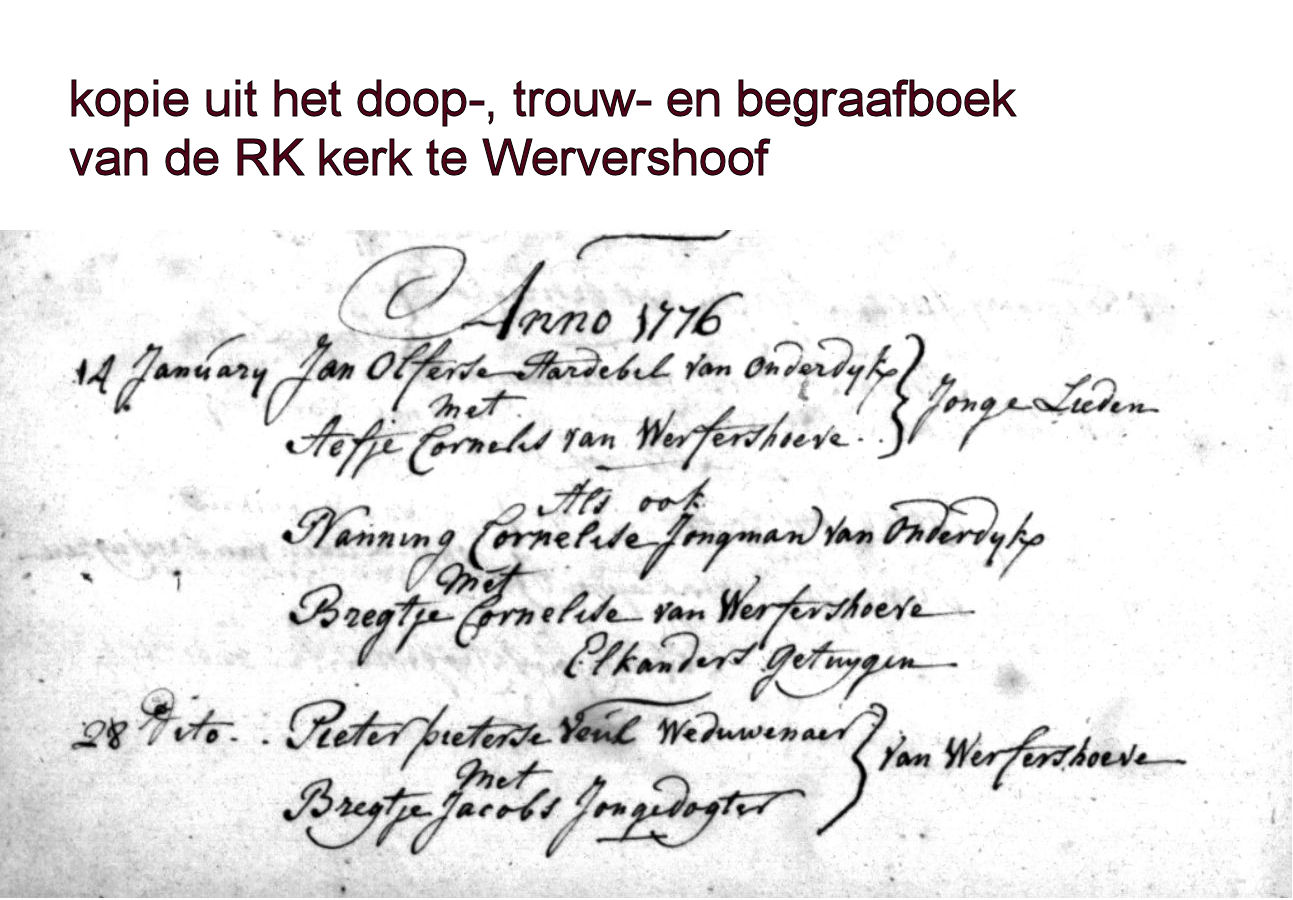 kopie uit het doop-, trouw- en begraafboek
van de RK kerk te Wervershoof
Anno 1776
14 January Jan Olferse Hardebel van Onderdyk
met
Aefje Cornelis van Werfershoeve
Jonge Lieden
Als ook
Nanning Cornelise Jongman van Onderdyk
Met
Bregtje Cornelise van Werfershoeve
Elkanders Getuygen
28 Dito. Pieter pieterse Veul Weduwenaer
Met
Bregtje Jacobs Jongedogter
van Werfershoeve